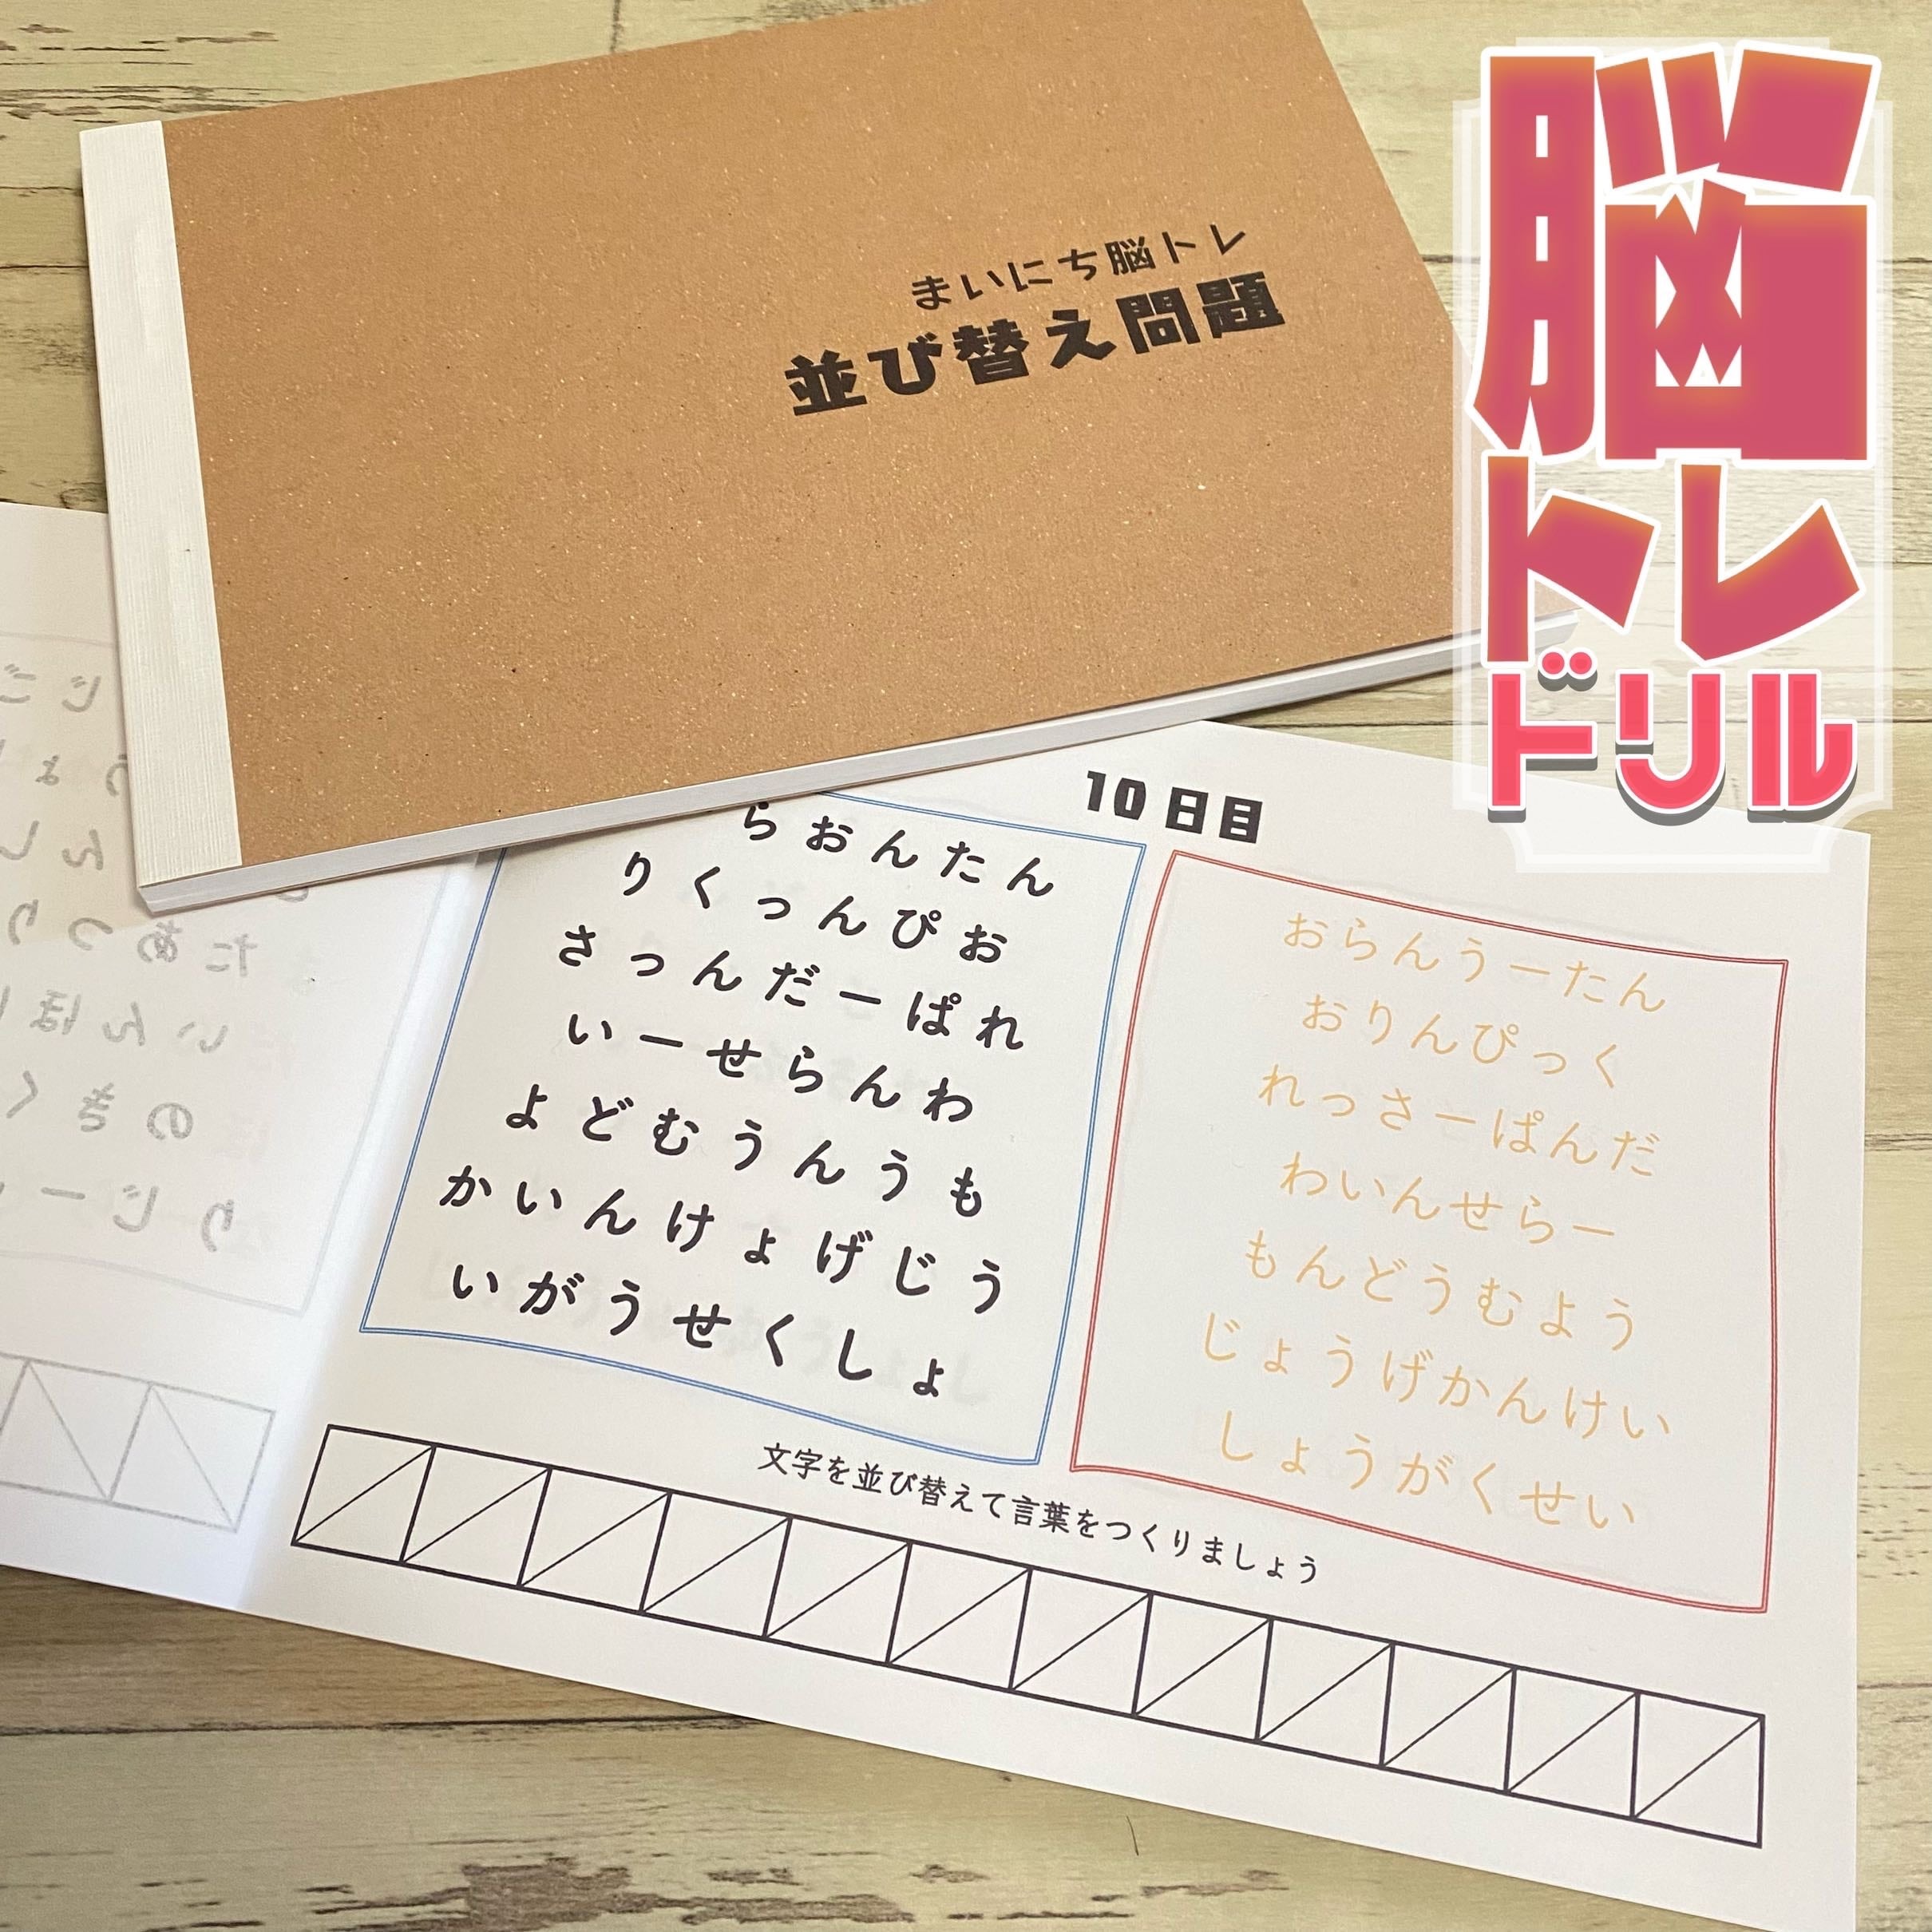 脳
トレ
ドリル
まいにち脳トレ
並び替え問題
10日目
らおんたん
りくっんぴお
さっんだーぱれ
いーせらんわ
よどむうんうも
かいんけょげじう
いがうせくしょ
おらんうーたん
おりんぴっく
れっさーぱんだ
わいんせらー
もんどうむよう
じょうげかんけい
しょうがくせい
文字を並び替えて言葉をつくりましょう